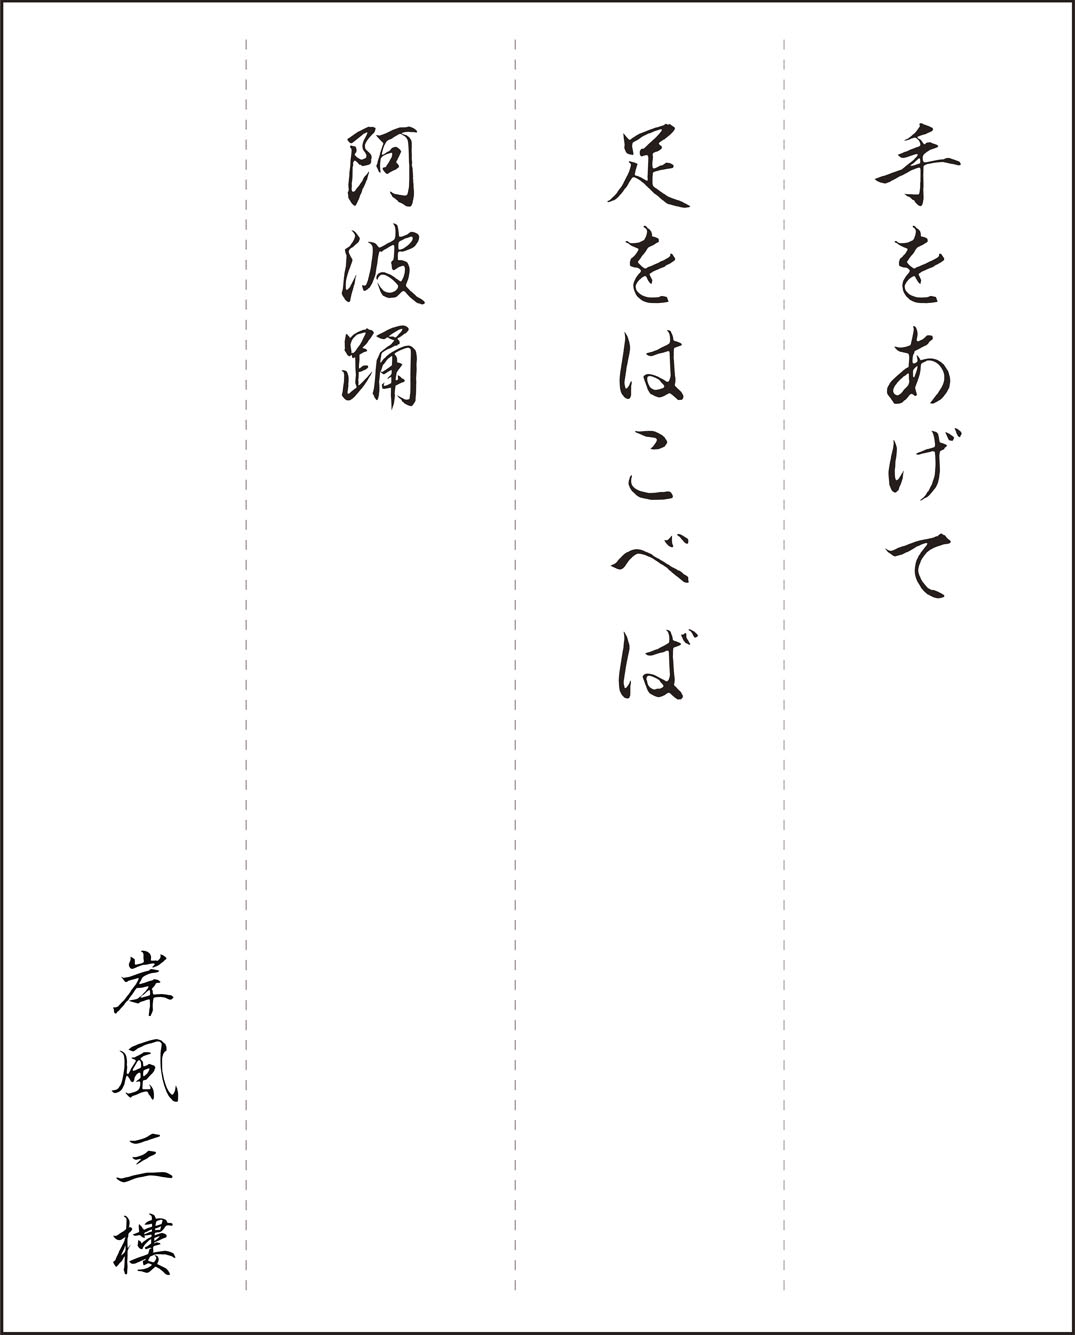 手をあげて
足をはこべば
阿波踊
岸風三樓